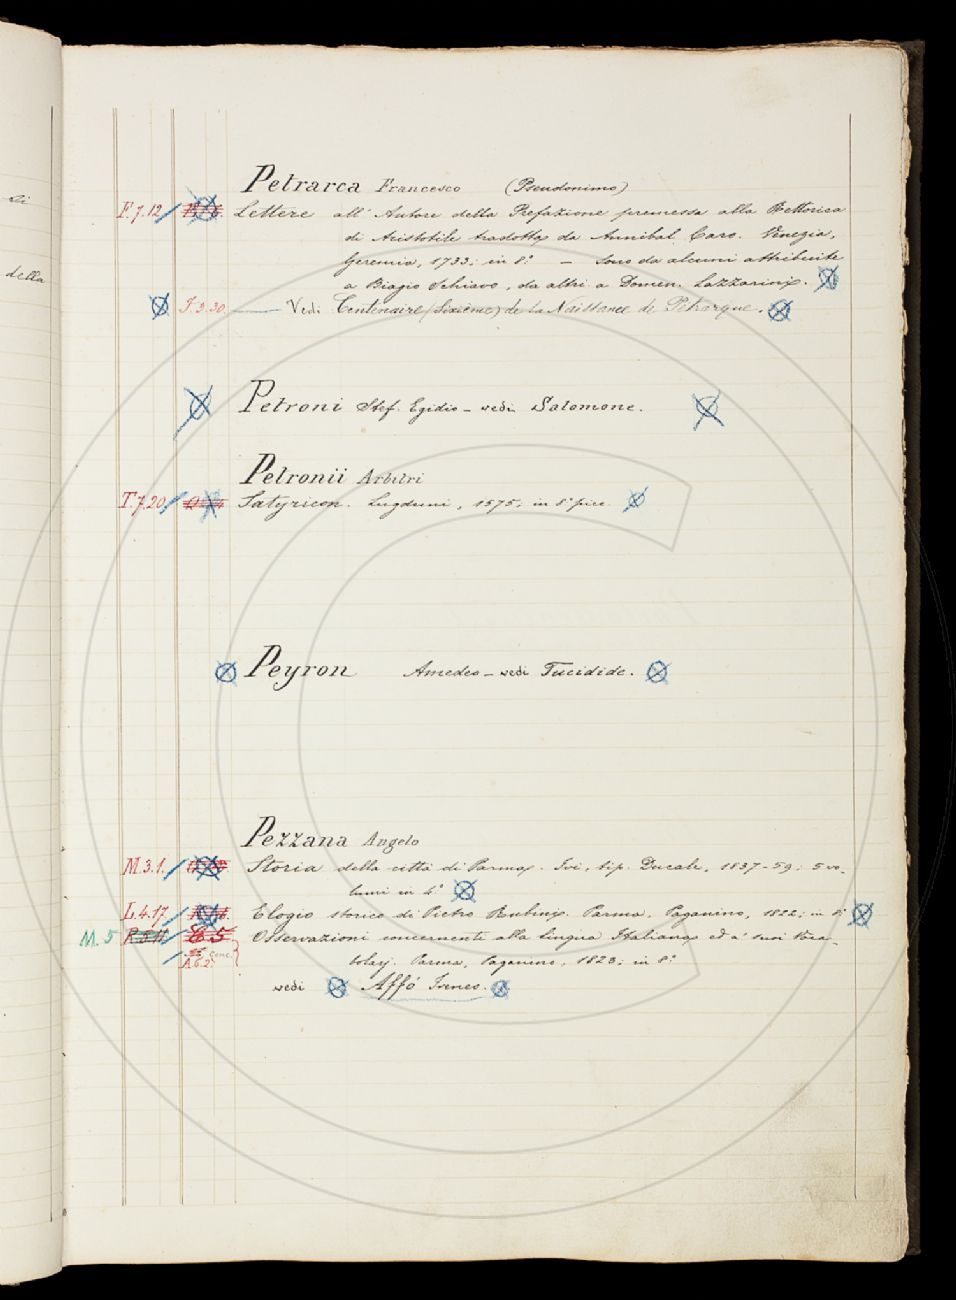 li
della
Petrarca Francesco (Pseudonimo)
F.7.12 Lettere all' Autore della Prefazione premessa alla Rettorica
di Aristotile tradotta da Annibal Caro. Venezia,
Geremia, 1733; in 8.° — Sono da alcuni attribuite
a Biagio Schiavo, da altri a Domen. Lazzarini.
I.3.30. — Vedi Centenaire (Sixième) de la Naissance de Petrarque.
Petroni Stef. Egidio – vedi Salomone.
Petronii Arbitri
T.7.20 Satyricon. Lugduni, 1575; in 8° picc.
Peyron Amedeo – vedi Tucidide.
Pezzana Angelo
M.3.1. Storia della città di Parma. Ivi, tip. Ducale, 1837-59; 5 vo-
lumi in 4.°
L.4.17. Elogio storico di Pietro Rubini. Parma, Paganino, 1822; in 8°
M. 5 Osservazioni concernenti alla lingua Italiana ed a' suoi Voca-
A.6.2. bolarj. Parma, Paganino, 1823; in 8.°
vedi Affò Ireneo.